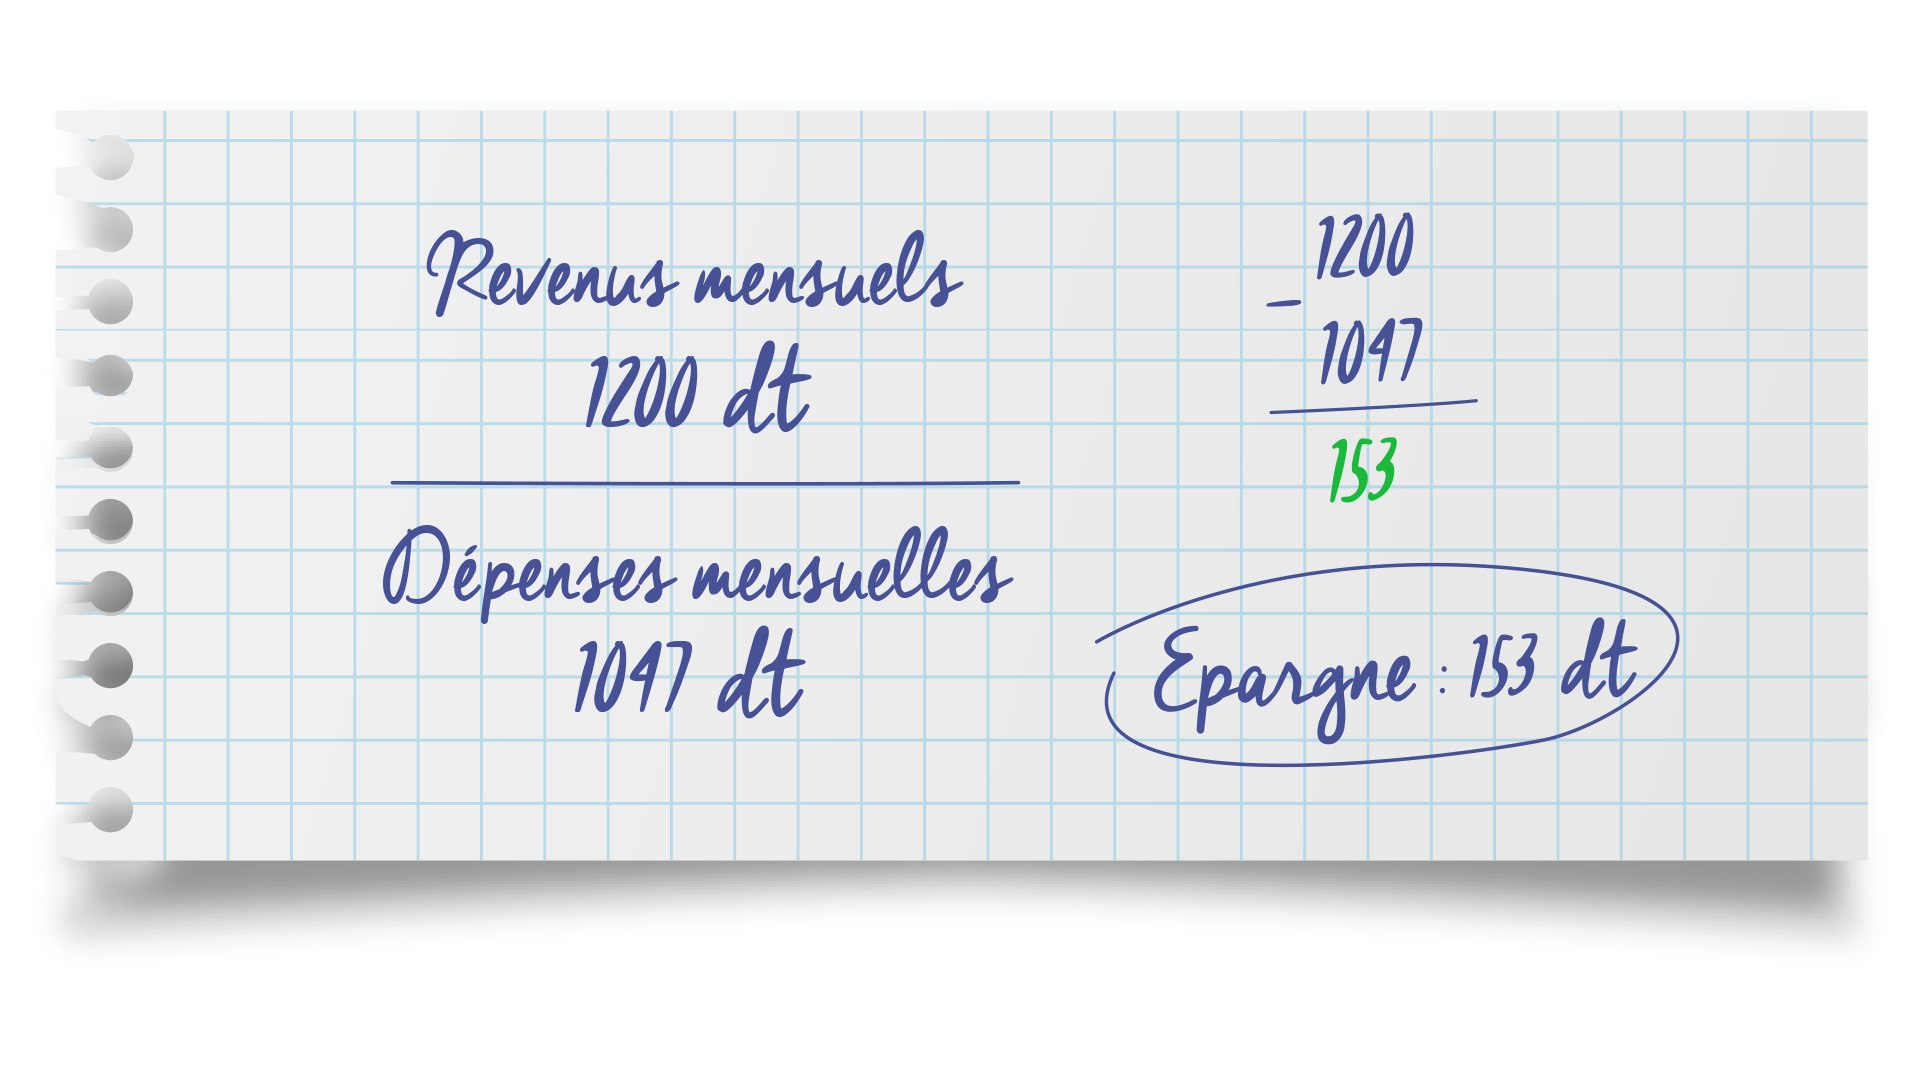 Revenus mensuels
1200 dt
Dépenses mensuelles
1047 dt
1200
-
1047
153
Epargne : 153 dt